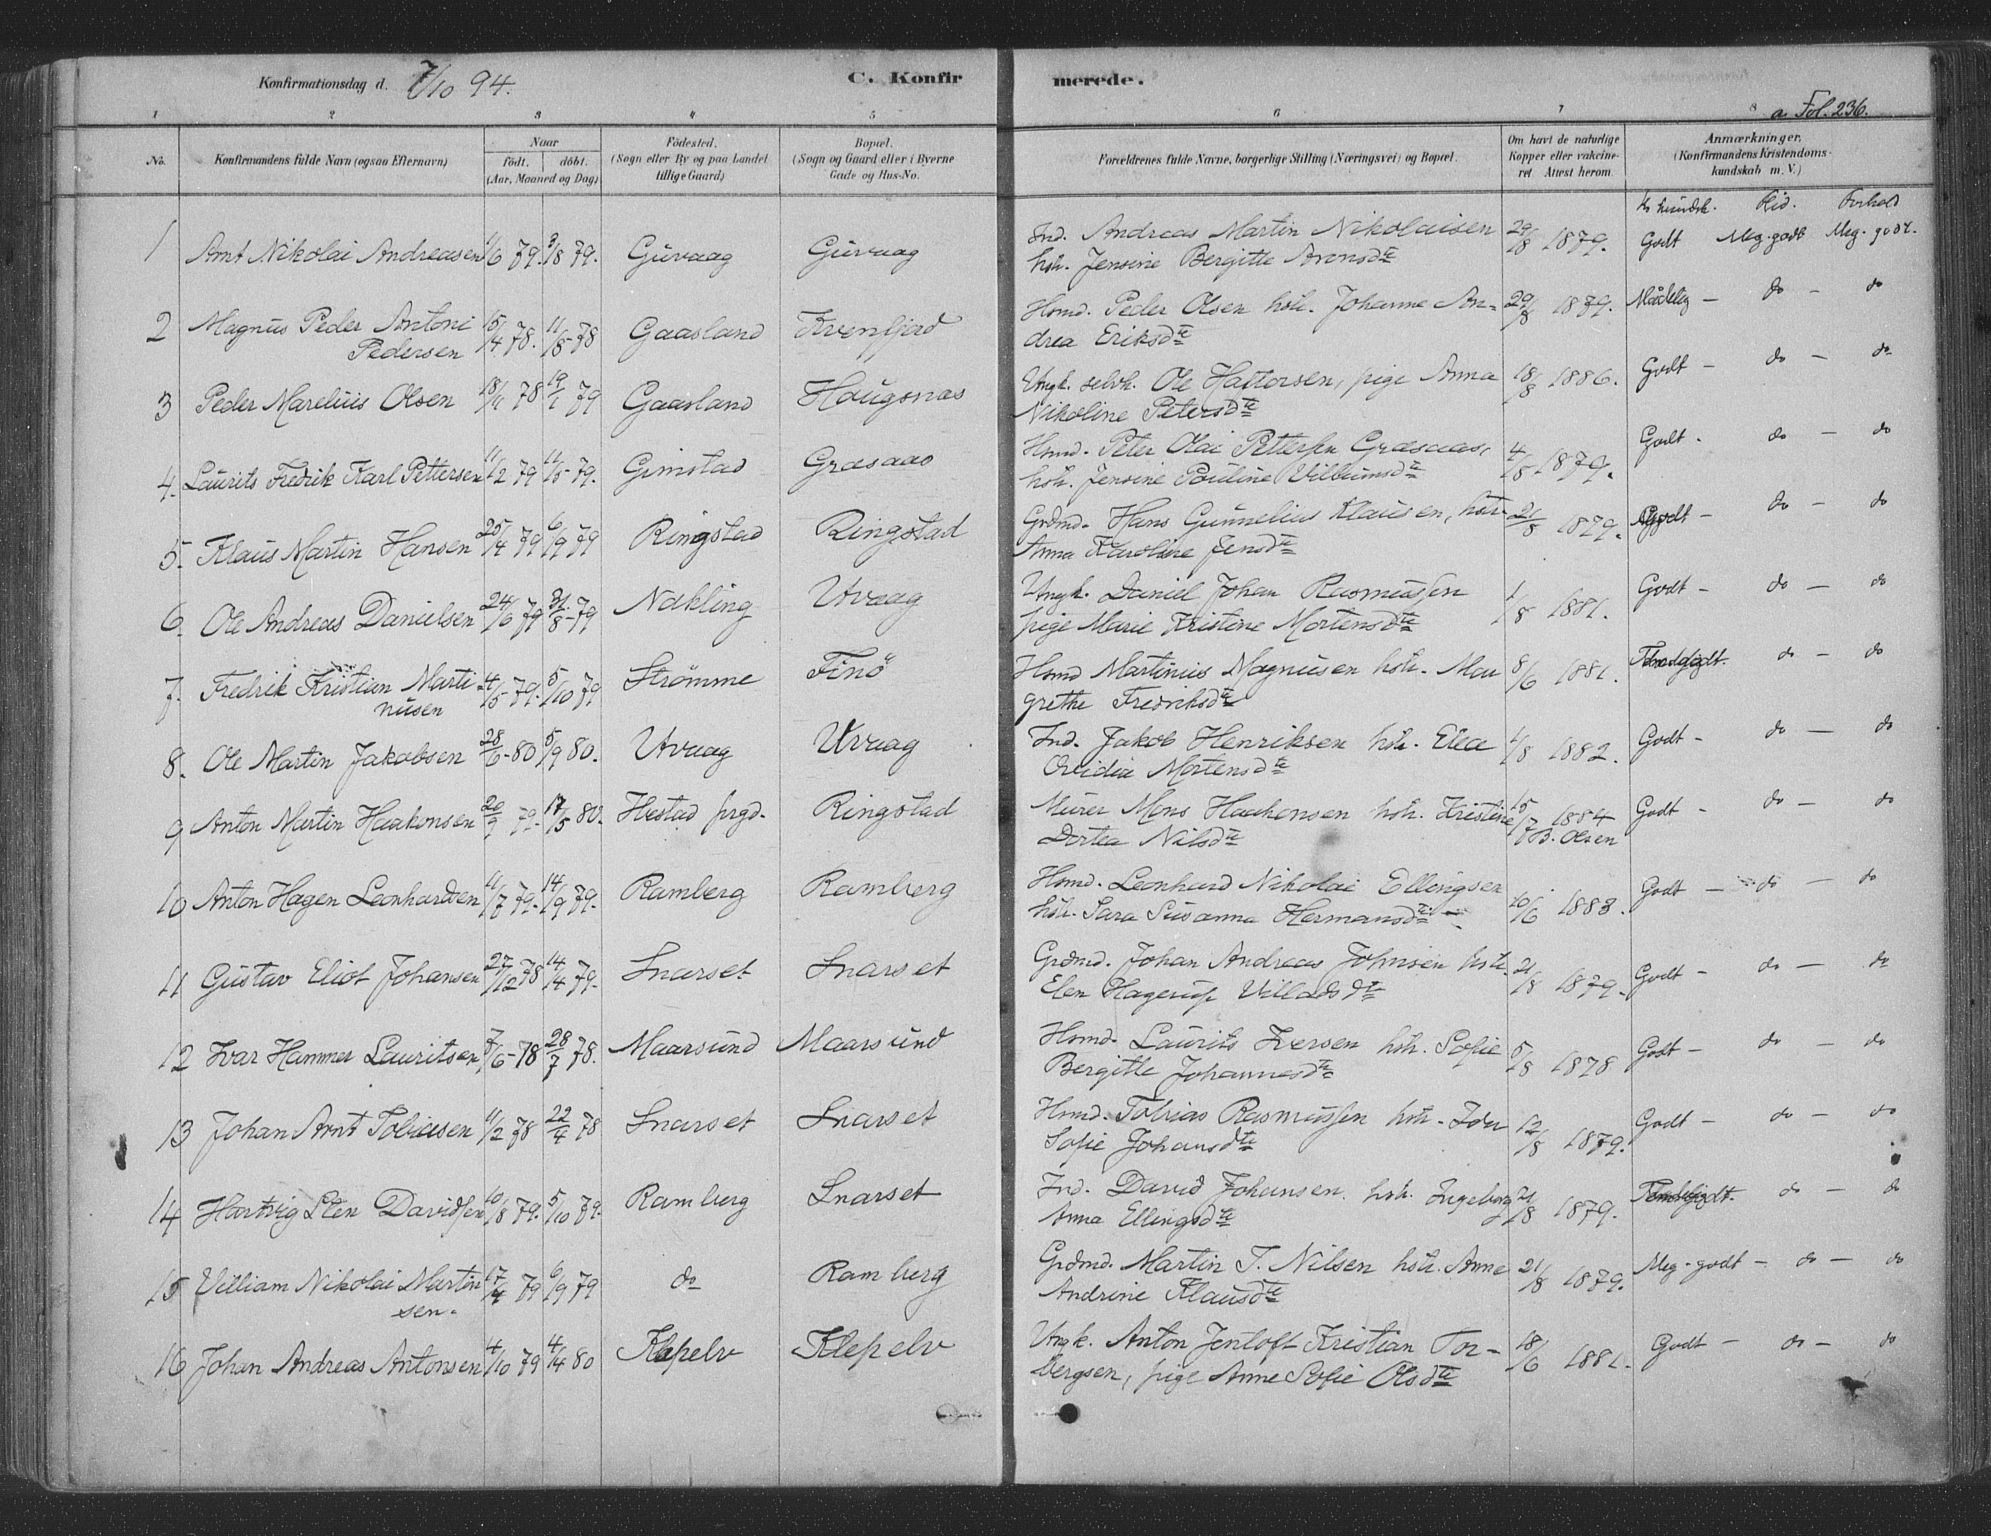 Konfirmationsdag d. 7/10 94.
C. Konfirmerede.
a Fol. 236.
1 2 3 4 5 6 7 8
No. Konfirmandens fulde Navn (ogsaa Efternavn) Naar födt. döbt. (Aar, Maaned og Dag) Födested. (Sogn eller By og paa Landet tillige Gaard) Bopæl. (Sogn og Gaard eller i Byerne Gade og Hus-No. Forældrenes fulde Navne, borgerlige Stilling (Næringsvei) og Bopæl. Om havt de naturlige Kopper eller vakcineret Attest herom. Anmærkninger. (Konfirmandens Kristendomskundskab m. V.)
Kr kundsk. Flid. Forhold
1 Arnt Nikolai Andreasen 1/6 79. 3/8 79. Guvaag Guvaag Ind. Andreas Martin Nikolaisen 29/8 1879. Godt Meg. godt Meg. godt.
hstr. Jensine Bergitte Arensdtr
2 Magnus Peder Antoni 15/4 78. 11/8 78 Gaasland Kvenfjord Hsmd. Peder Olsen hstr. Johanne An- 29/8 1879. Mådelig — do — do
Pedersen drea Eriksdtr
3 Peder Marelius Olsen 78 19/1 79 Gaasland Haugsnas Ungk. selvh. Ole Hattorsen, pige Anna 18/8 1886. Godt — do — do
Nikoline Petersdtr
4. Laurits Fredrik Karl Pettersen 11/2 79 11/5 79. Gimstad Græsaas Hsmd. Peter Olai Pettersen Græsaas, 4/8 1879. Godt - do — do
hstr. Jensine Pauline Vilhumsdtr
5. Klaus Martin Hansen 25/4 79 6/9 79 Ringstad Ringstad Grdmd. Hans Gunnelius Klausen, hstr 21/8 1879. Godt — do — do
Anna Karoline Jensdtr
6. Ole Andreas Danielsen 24/6 79 31/8 79 Nakling Utvaag Ungk. Daniel Johan Rasmussen 1/8 1881. Godt — do — do
pige Marie Kristine Mortensdtr
7. Fredrik Kristian Marti- 4/5 79. 5/10 79 Strømme Finø Hsmd Martinius Magnusen hstr. Mar 8/6 1881. do — do
nusen grethe Fredriksdtr
8. Ole Martin Jakobsen 28/6 80 5/9 80. Utvaag Utvaag Ind. Jakob Henriksen hstr. Elea 1/8 1882. Godt — do — do
Ovidia Mortensdtr
9 Anton Martin Haakonsen 20/9 79. 17/5 80. Hestad prgd. Ringstad Murer Mons Haakonsen hstr. Kristine 15/7 1884 Godt — do — do
Dortea Nilsdtr B. Olsen
10 Anton Hagen Leonhardsen 11/7 79. 14/9 79. Ramberg Ramberg Hsmd. Leonhard Nikolai Ellingsen 10/6 1883. Godt — do — do
hstr. Sara Susanna Hermansdtr —
11 Gustav Eliot Johansen 27/12 78 14/4 79. Snarset Snarset Grdmd. Johan Andreas Johnsen hstr. 21/8 1879. Godt — do — do
Elen Hagerup Villadsdtr
12 Ivar Hammer Lauritsen 7/6 78 28/7 78. Maarsund Maarsund Hsmd. Laurits Iversen hstr. Sofie 5/8 1878 Godt — do — do
Bergitte Johannesdtr
13 Johan Arnt Tobiasen 11/2 78 22/4 78 Snarset Snarset Hsmd. Tobias Rasmussen hstr. Ida 12/8 1879. Godt — do — do
Sofie Johansdtr
14 Hartvig Sten Davidsen 10/8 79. 5/10 79. Ramberg Snarset Ind. David Johansen hstr. Ingeborg 21/8 1879. do — do
Anna Ellingsdtr
15 Villiam Nikolai Martin 17/4 79 6/9 79 do Ramberg Grdmd. Martin T. Nilsen hstr. Anne 21/8 1879. Meg. godt — do — do
sen. Andrine Klausdtr
16 Johan Andreas Antonsen 4/10 79 4/4 80 Klepelv Klepelv Ungk. Anton Jentoft Kristian Tor- 18/6 1881. Godt — do — do
bergsen, pige Anne Sofie Olsdtr